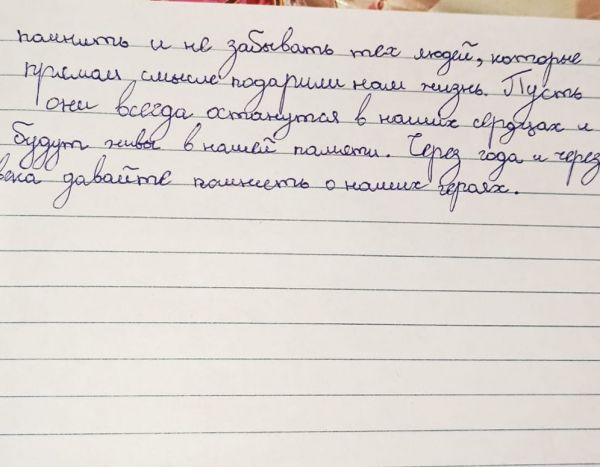 помнить и не забывать тех людей, которые
прямом смысле подарили нам жизнь. Пусть
они всегда останутся в наших сердцах и
будут живы в нашей памяти. Через года и через
века давайте помнить о наших героях.